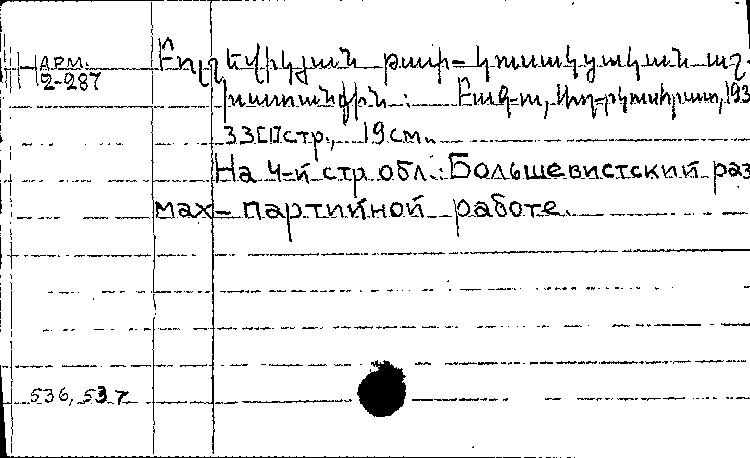 АРМ.
2-287
Բոլշևիկյան թափ- կուսակցական աշ-
խատանքին: Բաքու,
33[1]стр., 19см.
На 4-й стр. обл.: Большевистский раз
мах- партийной работе.
536, 537